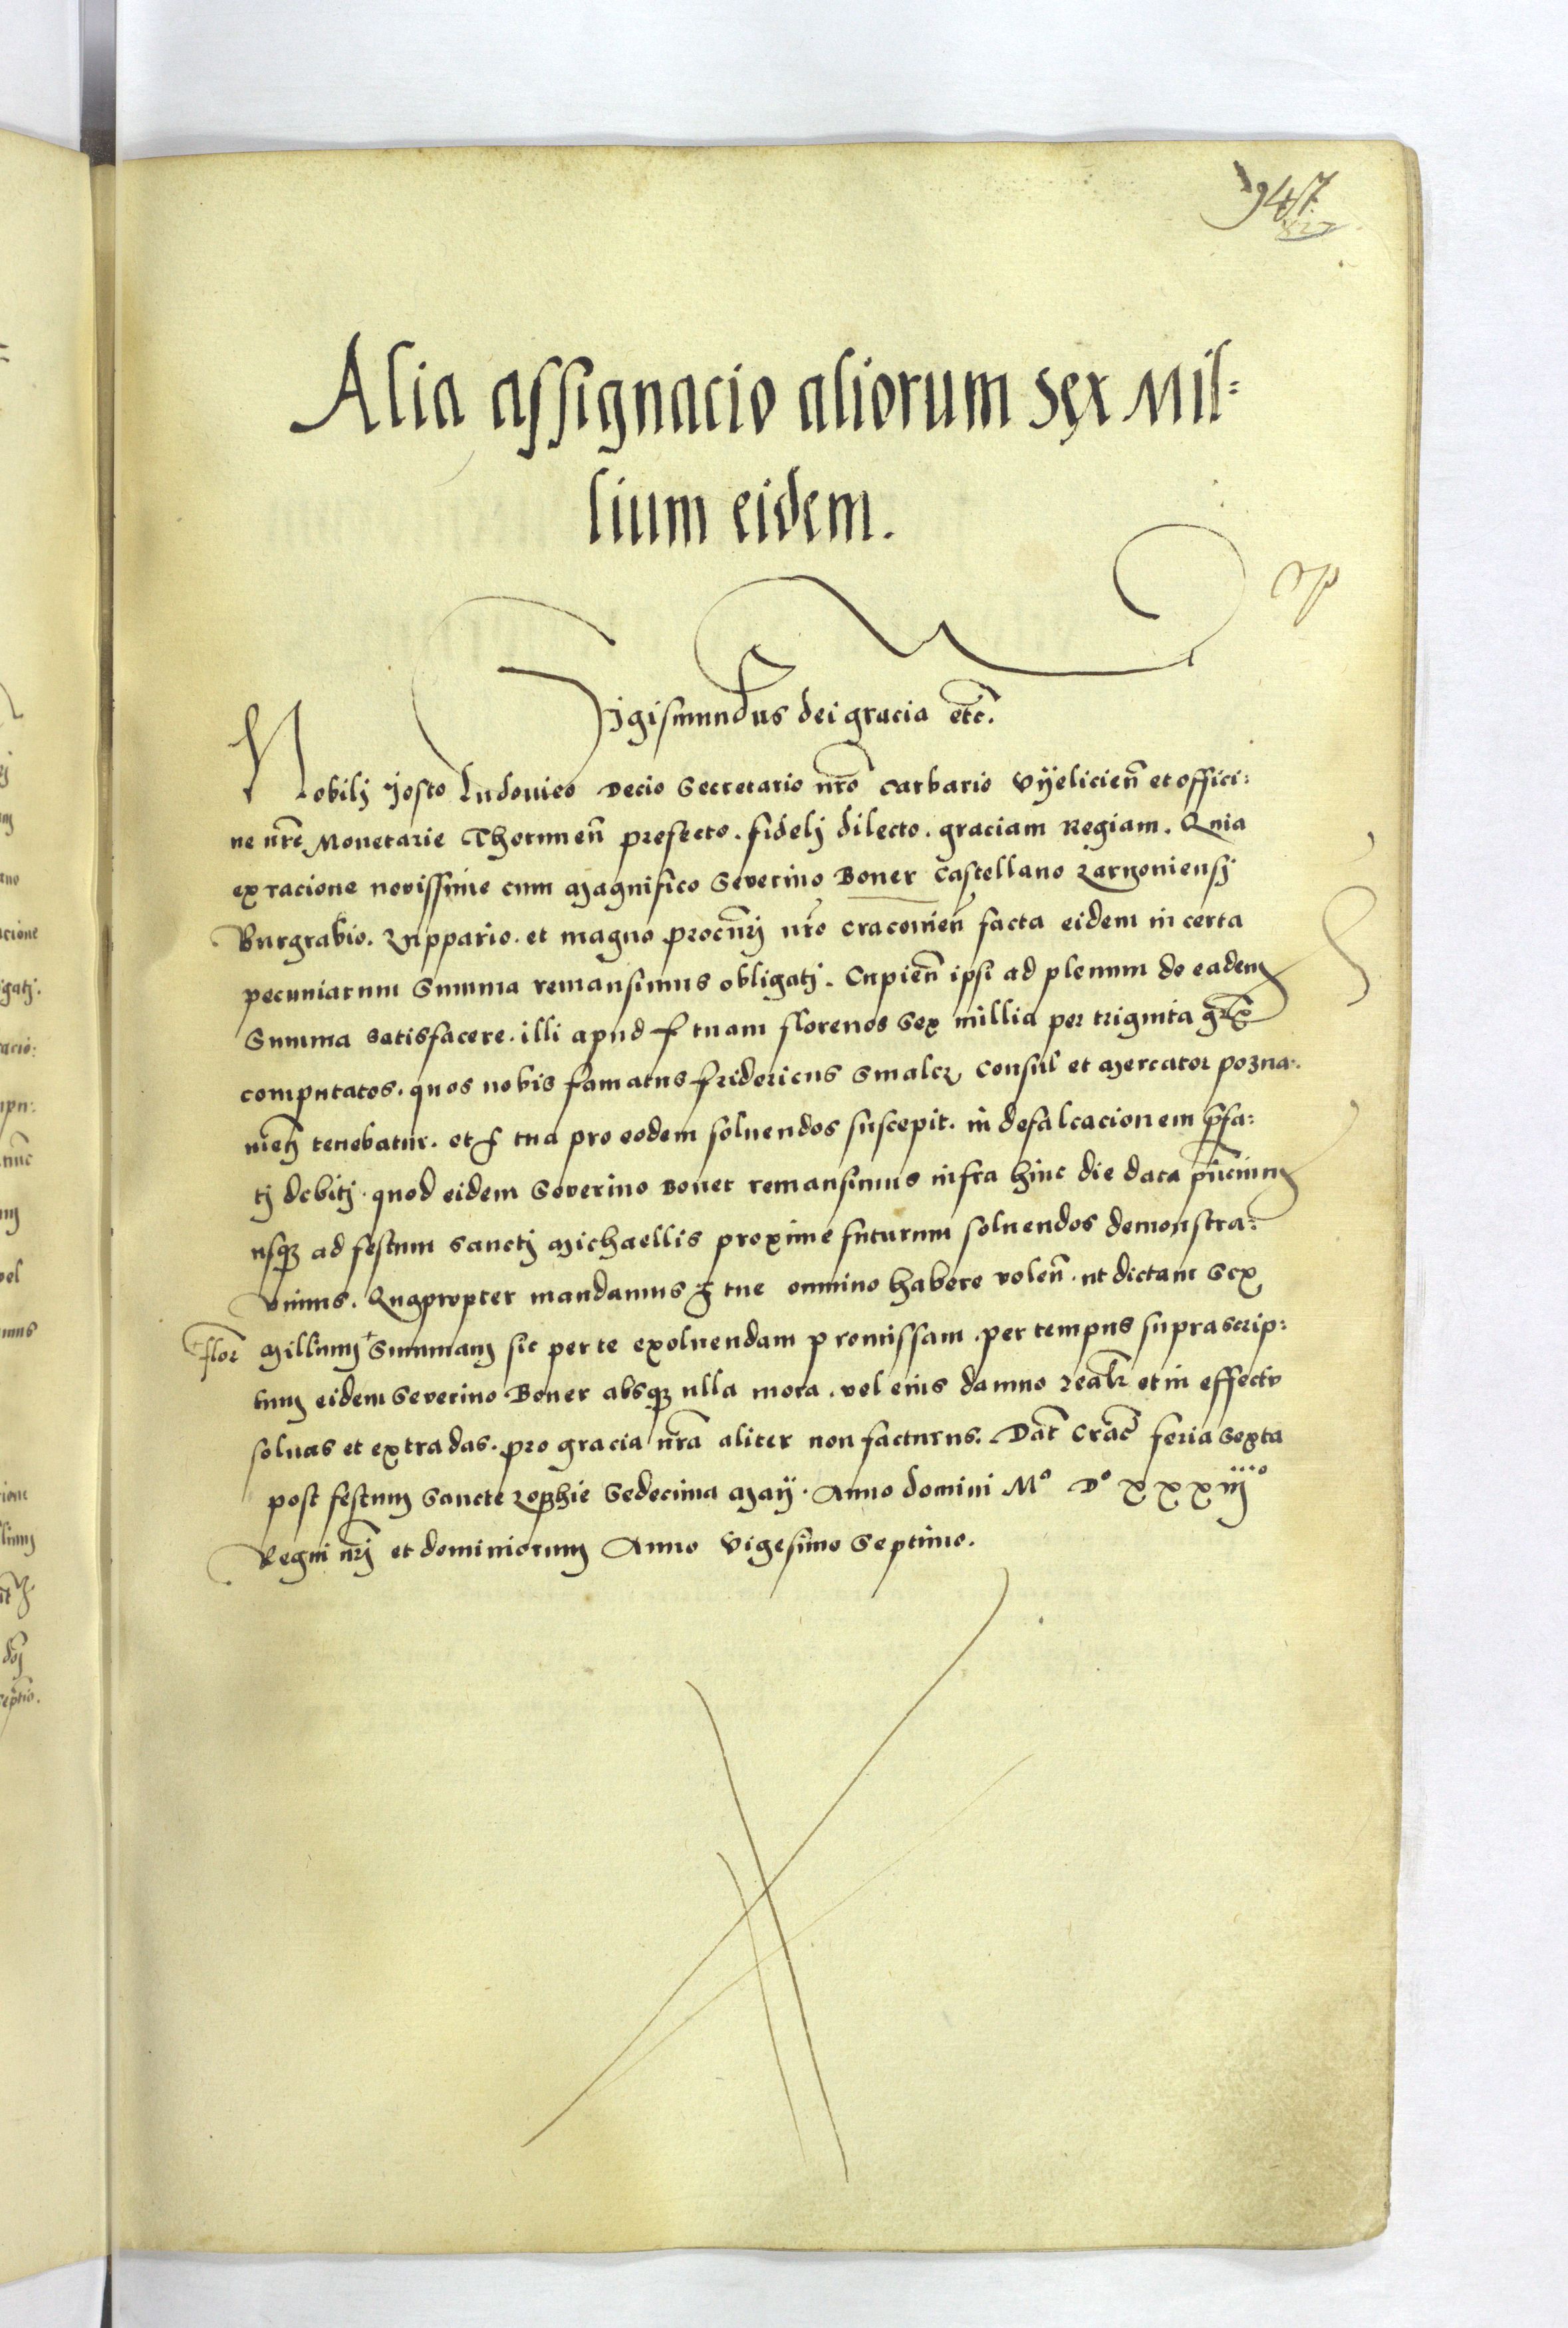 947
827
Alia assignacio aliorum sex Mil=
lium eidem.
Sigismundus dei gracia etc̃.
Nobilj Josto Ludouico Decio Secretario nr̃o Carbario Vÿelicieñ et offici:
ne nr̃e Monetarie Thorunieñ prefecto. fidelj dilecto. graciam Regiam. Quia
ex racione novissime cum Magnifico Severino Boner Castellano Zarnoviensj
Burgrabio. Zuppario. et magno procur̃j nr̃o Cracovieñ facta eidem in certa
pecuniarum Summa remansimus obligatj. Cupieñ ipsi ad plenum de eadem
Summa satisfacere. illi apud f tuam florenos Sex millia per triginta gr̃
computatos. quos nobis famatus Fridericus Smalcz Consul et Mercator pozna:
nieñ tenebatur. et f tua pro eodem soluendos suscepit. in defalcacionem p̃fa:
tj debitj. quod eidem Severino Boner remansimus infra hinc die data p̃ncium
usq̃ ad festum Sanctj Michaellis proxime futurum soluendos demonstra:
vimus. Quapropter mandamus f tue omnino habere voleñ. ut dictam Sex
flor̃ Millium + Summam sic per te exoluendam promissam. per tempus suprascrip:
tum eidem Severino Boner absq̃ ulla mora. vel eius damno realr̃ et in effectu
soluas et extradas. pro gracia nr̃a aliter non facturus. Dat̃ Crac̃ feria Sexta
post festum Sancte Zophie Sedecima Maÿ. Anno domini Mº Dº XXXiijº
Regni nr̃j et dominiorum Anno Vigesimo Septimo.